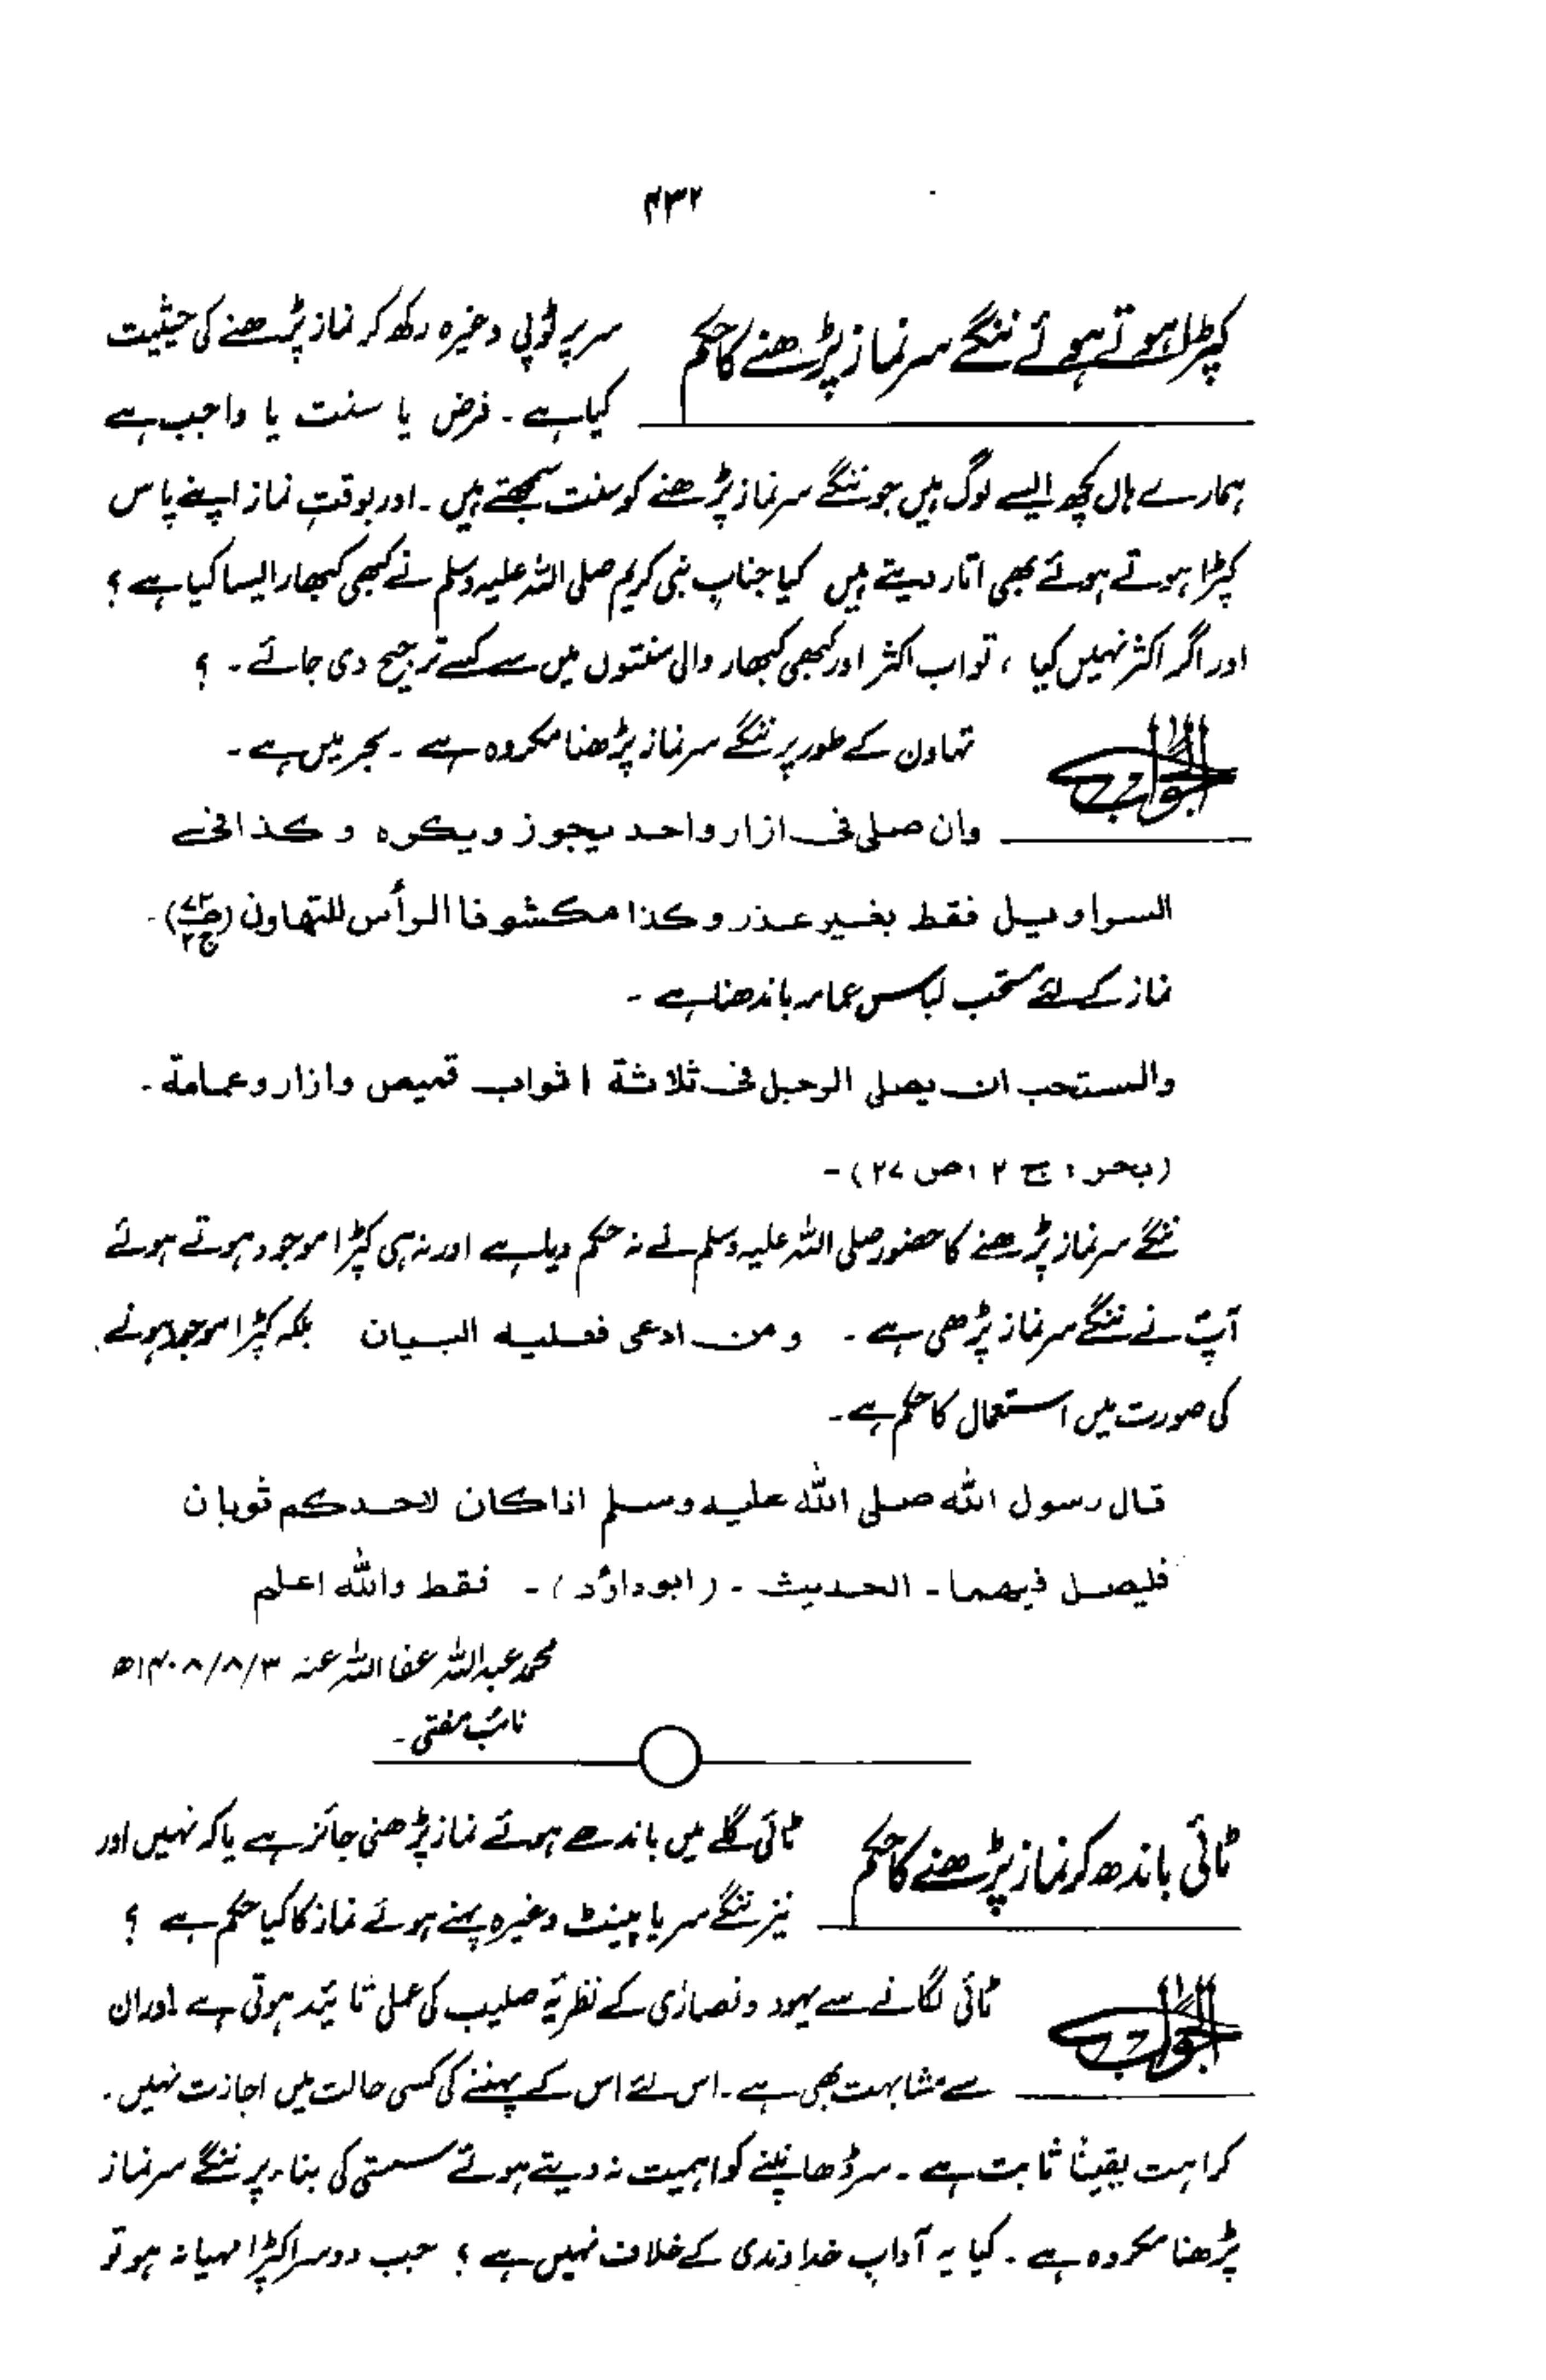 ۴۳۲
کپڑا ہوتے ہوئے ننگے سر نماز پڑھنے کا حکم
سر پر ٹوپی وغیرہ رکھ کر نماز پڑھنے کی حیثیت
کیا ہے ۔ فرض یا سنت یا واجب ہے
ہمارے ہاں کچھ ایسے لوگ ہیں جو ننگے سر نماز پڑھنے کو سنت سمجھتے ہیں ۔ اور بوقتِ نماز اپنے پاس
کپڑا ہوتے ہوئے بھی اتار دیتے ہیں کیا جناب نبی کریم صلی اللہ علیہ وسلم نے کبھی کبھار ایسا کیا ہے ؟
اور اگر اکثر نہیں کیا ، تو اب اکثر اور کبھی کبھار والی سنتوں میں سے کسے ترجیح دی جائے ۔ ؟
الجواب
تہاون کے طور پر ننگے سر نماز پڑھنا مکروہ ہے ۔ بحر میں ہے ۔
وان صلی فی ازار واحد یجوز ویکرہ وکذا فی
السراویل فقط بغیر عذر وکذا مکشوفا الرأس للتھاون (ج۲ ص۲۷) ۔
نماز کے لئے مستحب لباس عمامہ باندھنا ہے ۔
والمستحب ان یصلی الرجل فی ثلاثة اثواب قمیص وازار وعمامة ۔
(بحر ، ج ۲ ، ص ۲۷) ۔
ننگے سر نماز پڑھنے کا حضور صلی اللہ علیہ وسلم نے نہ حکم دیا ہے اور نہ ہی کپڑا موجود ہوتے ہوئے
آپؐ نے ننگے سر نماز پڑھی ہے ۔ ومن ادعی فعلیہ البیان بلکہ کپڑا موجود ہونے
کی صورت میں استعمال کا حکم ہے ۔
قال رسول اللہ صلی اللہ علیہ وسلم اذا کان لاحدکم ثوبان
فلیصل فیھما ۔ الحدیث ۔ (ابوداؤد) ۔ فقط واللہ اعلم
محمد عبداللہ عفا اللہ عنہ ۳/۸/۱۴۰۸ھ
نائب مفتی ۔
ٹائی باندھ کر نماز پڑھنے کا حکم
ٹائی گلے میں باندھے ہوئے نماز پڑھنی جائز ہے یا کہ نہیں اور
نیز ننگے سر یا پینٹ وغیرہ پہنے ہوئے نماز کا کیا حکم ہے ؟
الجواب
ٹائی لگانے سے یہود و نصاریٰ کے نظریۂ صلیب کی عملی تائید ہوتی ہے اور ان
سے مشابہت بھی ہے ۔ اس لئے اس کے پہننے کی کسی حالت میں اجازت نہیں ۔
کراہت یقیناً ثابت ہے ۔ سر ڈھانپنے کو اہمیت نہ دیتے ہوئے سستی کی بناء پر ننگے سر نماز
پڑھنا مکروہ ہے ۔ کیا یہ آدابِ خداوندی کے خلاف نہیں ہے ؟ جب دوسرا کپڑا مہیا نہ ہو تو